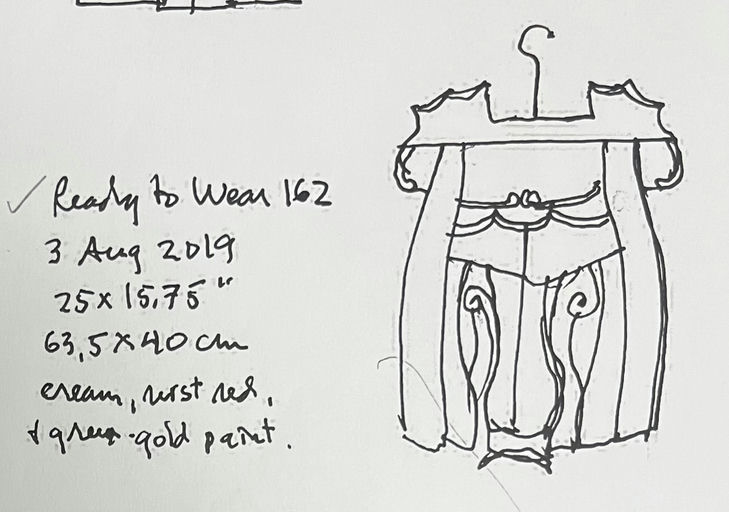 Ready to Wear 162
3 Aug 2019
25 x 15,75"
63,5 x 40 cm
cream, rust red,
+ green-gold paint.